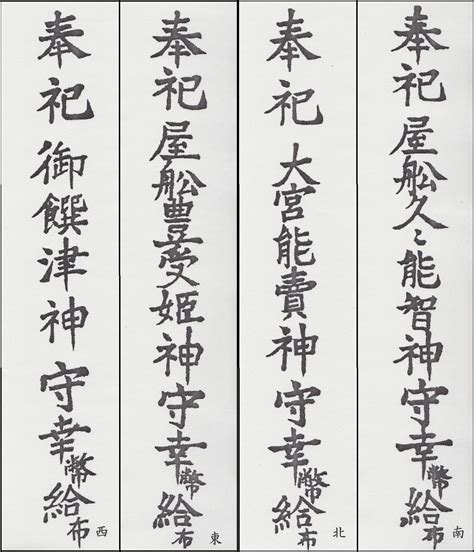 奉祀屋舩久〻能智神守幸幣給布 南
奉祀大宮能賣神守幸幣給布 北
奉祀屋舩豊受姫神守幸幣給布 東
奉祀御饌津神守幸幣給布 西